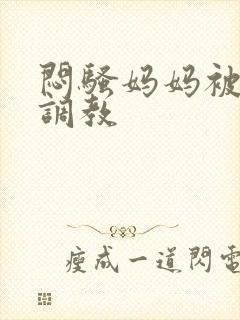 悶騷妈妈被
調教
瘦成一道閃電